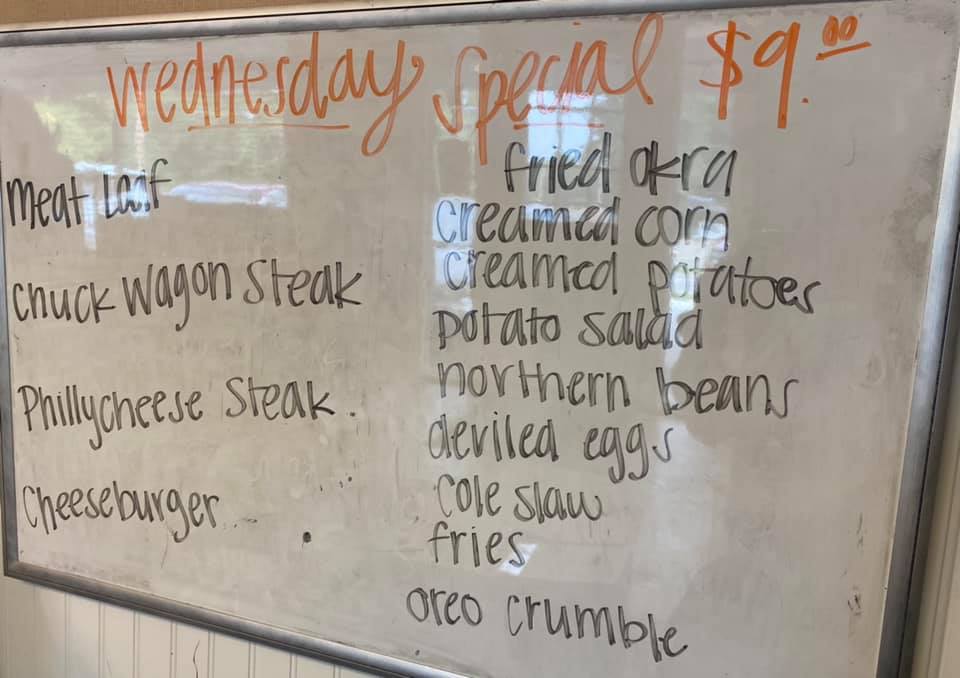 Wednesday Special $9.00
Meat Loaf
Chuck Wagon Steak
Phillycheese Steak.
Cheeseburger
fried okra
creamed corn
creamed potatoes
potato salad
northern beans
deviled eggs
Cole slaw
fries
oreo crumble